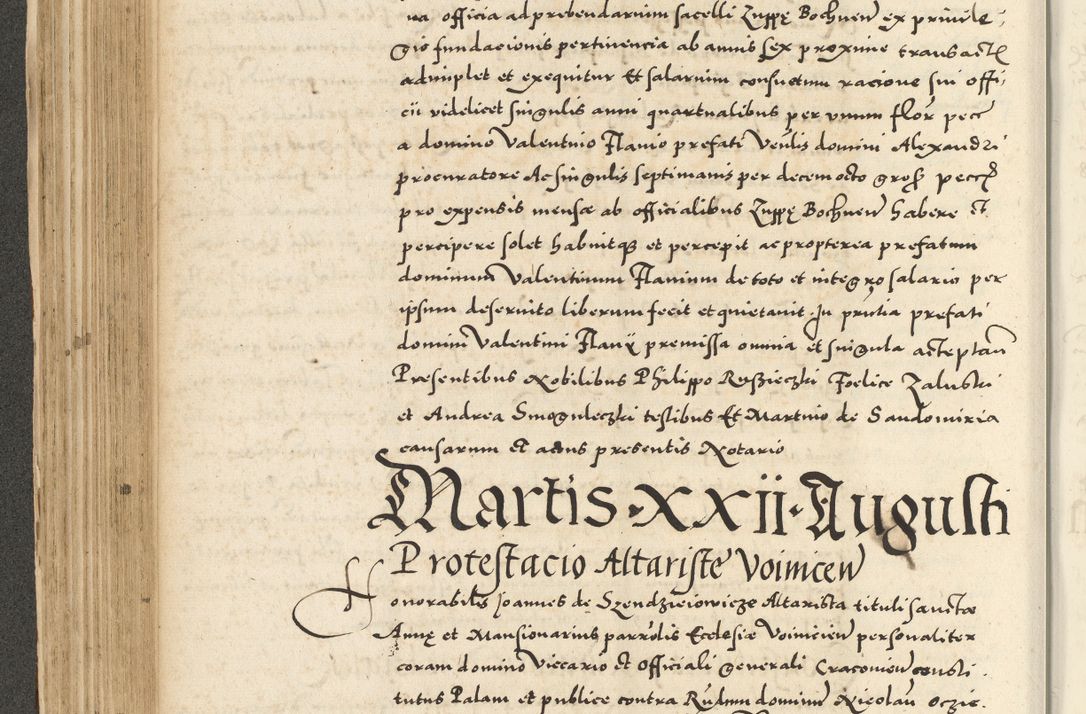 na officia ad prebendarum sacelli Zuppę Bochnen ex privile-
gio fundacionis pertinencia ab annis sex proxime transact
adimplet et exequitur Et salarium consuetum racione sui offi-
cii videlicet singulis anni quartualibus per unum flor pec
a domino Valentino Flamo prefati Venlis domini Alexandri
procuratore Ac singulis septimanis per decem octo gross pecc
pro expensis mensæ ab officialibus Zuppę Bochnen habere et
percipere solet habuitque et percepit ac propterea prefatum
dominum Valentinum Flamum de toto et integro salario per
ipsum deservito liberum fecit et quietavit In printia prefati
domini Valentini Flamii premissa omnia et singula acceptan
Præsentibus Nobilibus Philippo Ruszieczki Foelice Zaluski
et Andrea Smoguleczki testibus Et Martino de Sandomiria
causarum et actus presentis Notario
Martis · XXII · Augusti
Protestacio Altariste Voinicen
Honorabilis Joannes de Szendzieiowicze Altarista tituli sanctæ
Annę et Mansionarius parrolis Ecclesiæ Voinicien personaliter
coram domino Viccario et Officiali Generali Cracovien consti-
tutus Palam et publice contra Rndum dominum Nicolau Oczie-